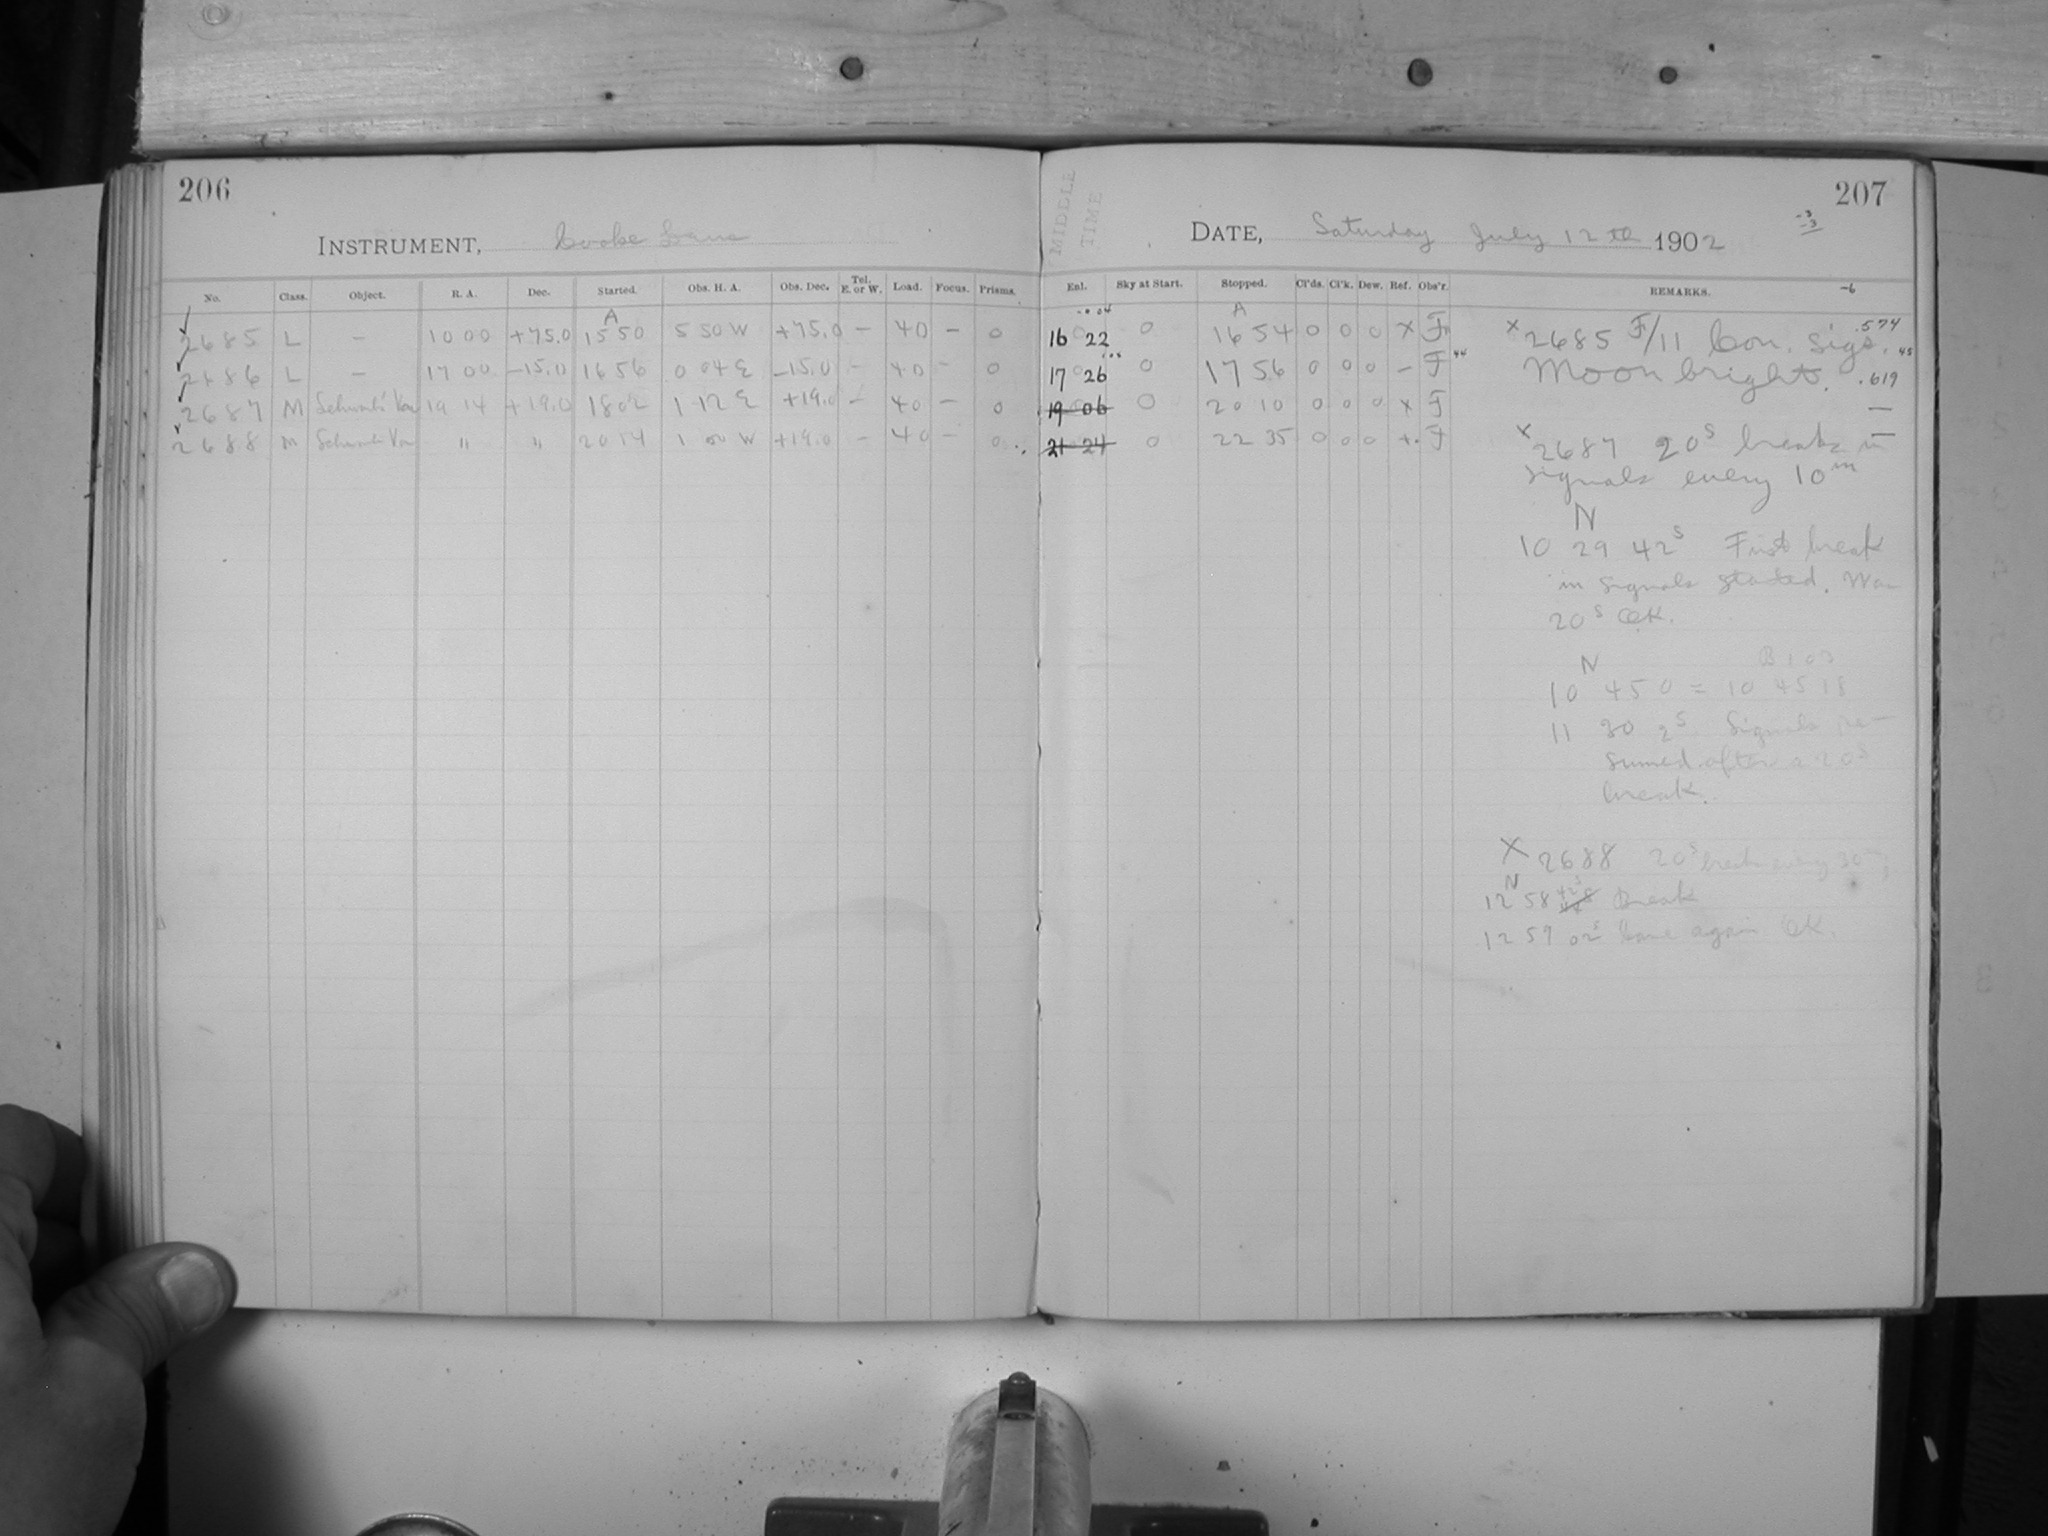 206
INSTRUMENT, Cooke Lens
No. Class. Object. R. A. Dec. Started. Obs. H. A. Obs. Dec. Tel. E. or W. Load. Focus. Prisms.
A
2685 L — 10 00 +75.0 15 50 5 50 W +75.0 — 40 — 0
2686 L — 17 00 —15.0 16 56 0 04 E —15.0 — 40 — 0
2687 M 19 14 +19.0 18 02 1 12 E +19.0 — 40 — 0
2688 M " " 20 14 1 00 W +19.0 — 40 — 0
MIDDLE
TIME
207
DATE, Saturday July 12th 1902
-3
-3
Enl. Sky at Start. Stopped. Cl'ds. Cl'k. Dew. Ref. Obs'r. REMARKS. -6
A
16 22 0 16 54 0 0 0 X F
17 26 0 17 56 0 0 0 — F
19 06 0 20 10 0 0 0 X F
21 24 0 22 35 0 0 0 +. F
X 2685 F/11 Con. Sigs. .574
45
Moon bright. .619
X 2687 20s breaks in
signals every 10m
N
10 29 42s First break
in signals started. Was
20s OK.
N B 103
10 45 0 = 10 45 18
11 30 2s. Signals re-
sumed after a 20s
break.
X 2688 20s break every 30m
N
12 58 42s Break
12 59 02s Gone again OK.